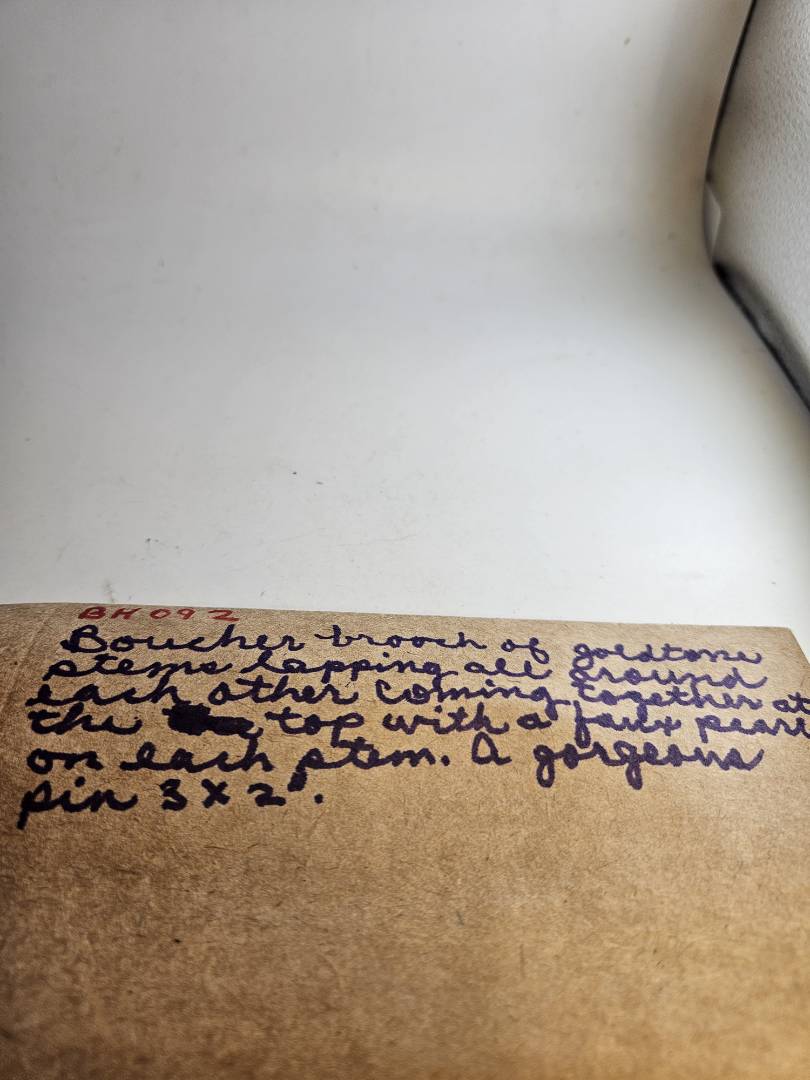 BH092
Boucher brooch of goldtone
stems lapping all around
each other coming together at
the top with a faux pearl
on each stem. A gorgeous
pin 3 x 2".